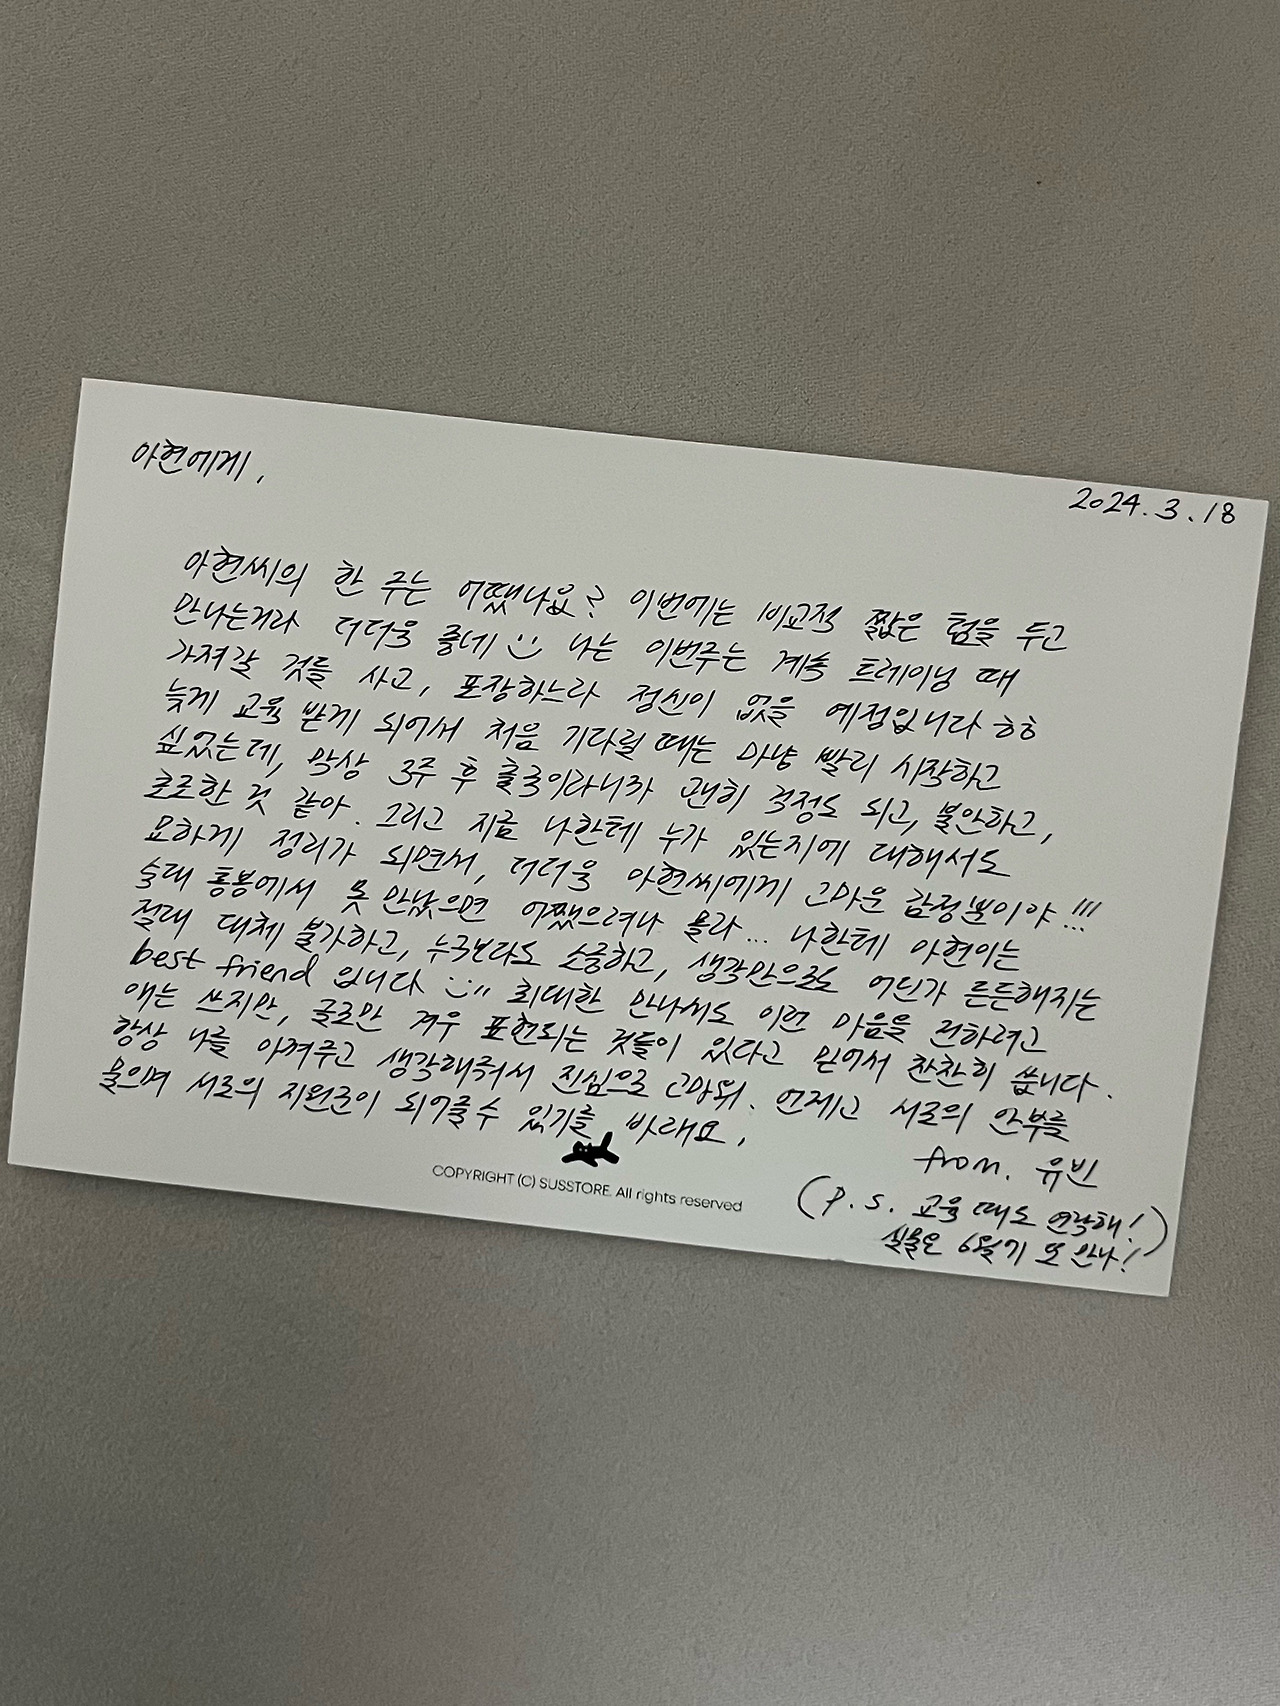 아현에게,
2024.3.18
아현씨의 한 주는 어땠나요? 이번에는 비교적 짧은 텀을 두고
만나는거라 더더욱 좋네 :) 나는 이번주는 계속 트레이닝 때
가져갈 것들 사고, 포장하느라 정신이 없을 예정입니다 ㅎㅎ
늦게 교육 받게 되어서 처음 기다릴 때는 마냥 빨리 시작하고
싶었는데, 막상 3주 후 출국이라니까 괜히 걱정도 되고, 불안하고,
초조한 것 같아. 그리고 지금 나한테 누가 있는지에 대해서도
묘하게 정리가 되면서, 더더욱 아현씨에게 고마운 감정뿐이야!!!
술대 통봉에서 못 만났으면 어쨌으려나 몰라... 나한테 아현이는
절대 대체 불가하고, 누구보다도 소중하고, 생각만으로도 어딘가 든든해지는
best friend 입니다 :)" 최대한 만나서도 이런 마음을 전하려고
애는 쓰지만, 글로만 겨우 표현되는 것들이 있다고 믿어서 찬찬히 씁니다.
항상 나를 아껴주고 생각해줘서 진심으로 고마워. 언제고 서로의 안부를
물으며 서로의 지원군이 되어줄수 있기를 바래요.
from. 유빈
(P.S. 교육 때도 연락해!)
실물은 6월기 또 만나!
COPYRIGHT (C) SUSSTORE. All rights reserved